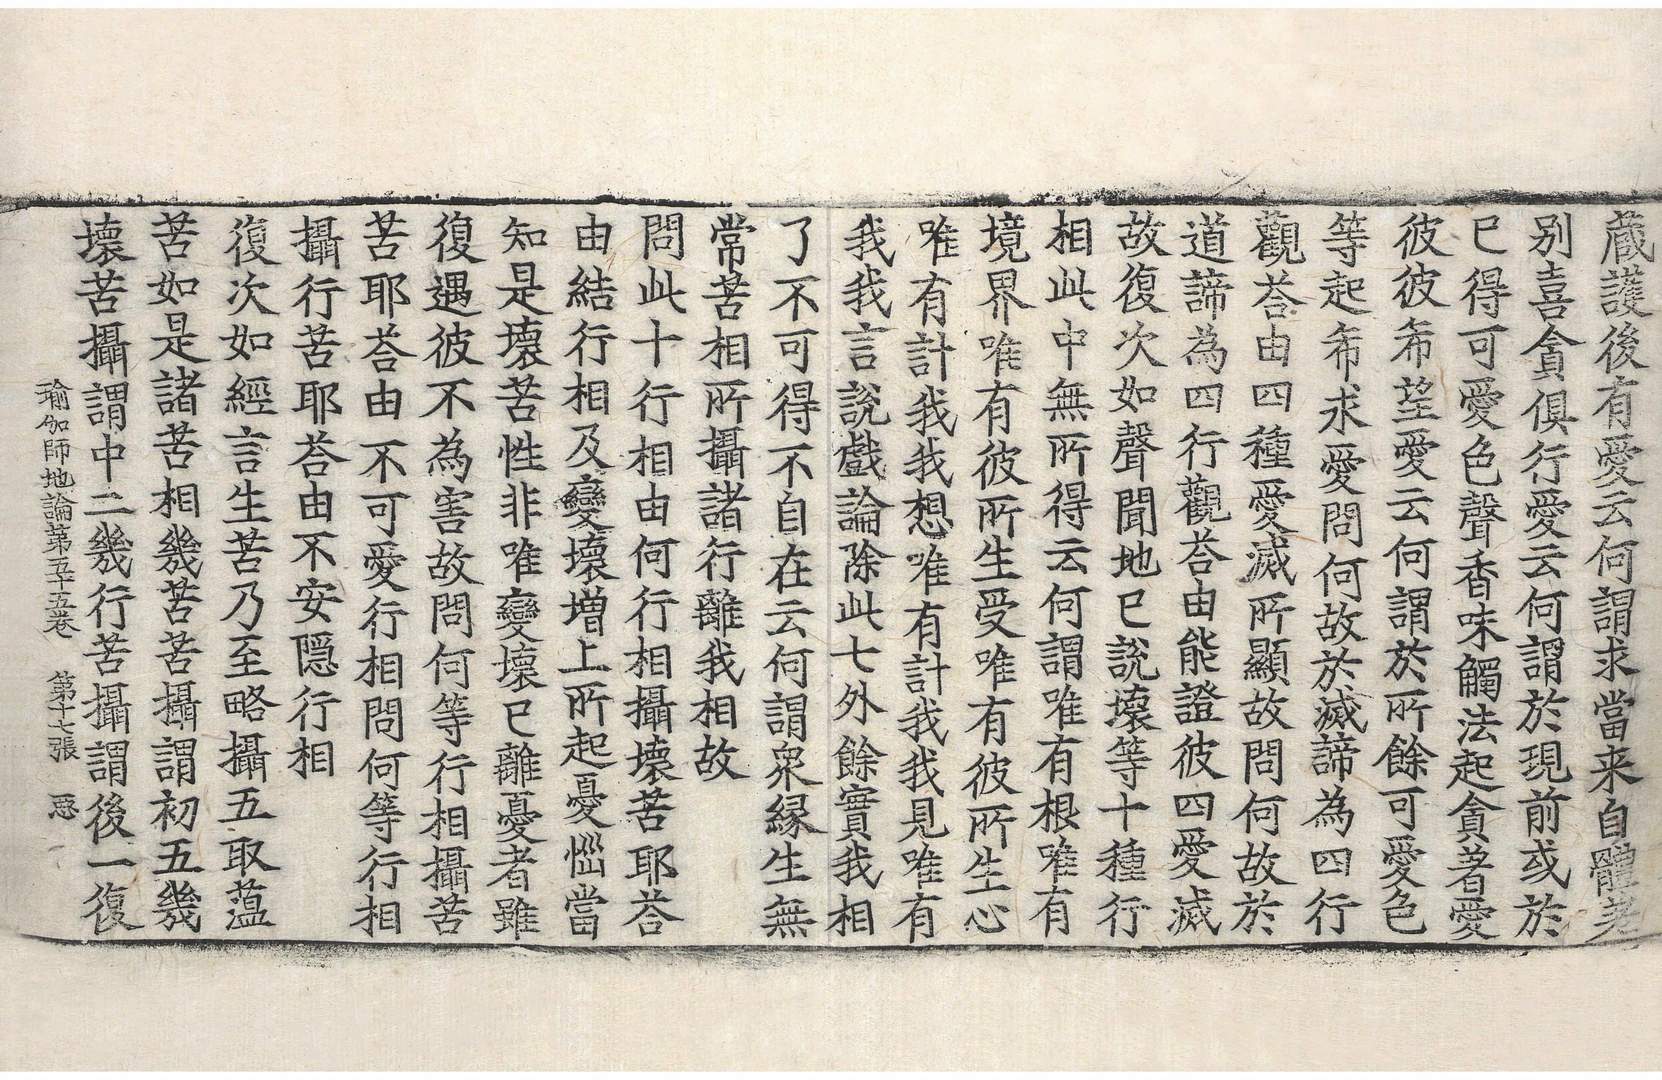 藏護後有愛云何謂求當来自體差
別喜貪俱行愛云何謂於現前或於
已得可愛色聲香味觸法起貪著愛
彼彼希望愛云何謂於所餘可愛色
等起希求愛問何故於滅諦為四行
觀荅由四種愛滅所顯故問何故於
道諦為四行觀荅由能證彼四愛滅
故復次如聲聞地已說壞等十種行
相此中無所得云何謂唯有根唯有
境界唯有彼所生受唯有彼所生心
唯有計我我想唯有計我我見唯有
我我言說戲論除此七外餘實我相
了不可得不自在云何謂衆緣生無
常苦相所攝諸行離我相故
問此十行相由何行相攝壞苦耶荅
由結行相及變壞増上所起憂惱當
知是壞苦性非唯變壞已離憂者雖
復遇彼不為害故問何等行相攝苦
苦耶荅由不可愛行相問何等行相
攝行苦耶荅由不安隱行相
復次如經言生苦乃至略攝五取蘊
苦如是諸苦相幾苦苦攝謂初五幾
壞苦攝謂中二幾行苦攝謂後一復
瑜伽師地論第五十五卷 第十七張 惡